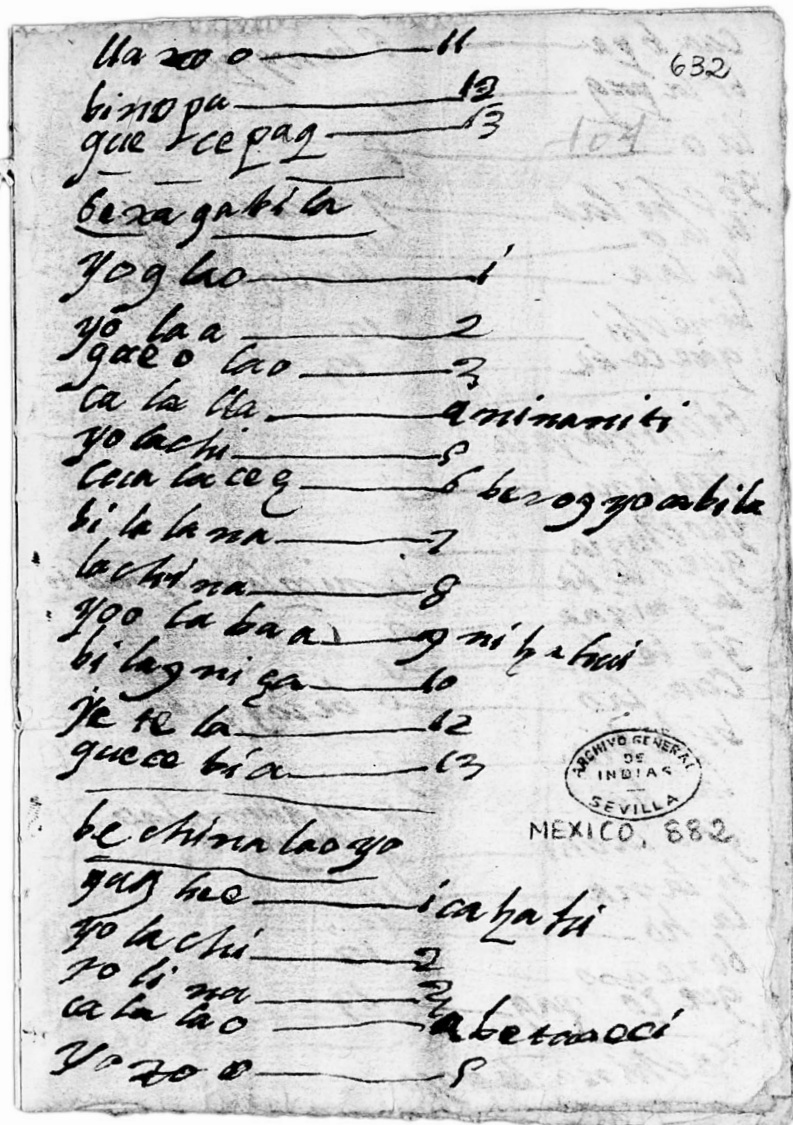 lla xoo o 11
632
binopa 12
gue cepag 13
104
bexagabila
yog lao 1
yo laa 2
gueo lao 3
ca la lla 4 ninaniti
yo lachi 5
ceca laceg 6 berog yoabila
bilalana 7
lachina 8
yoo la baa 9
bilagniça 10
ye te la 12
guece bia 13
ARCHIVO GENERAL
DE
INDIAS
SEVILLA
MEXICO, 882
bechina laoyo
yag hee 1
yo lachi 2
xo li na 3
ca la lao 4
yo zo o 5